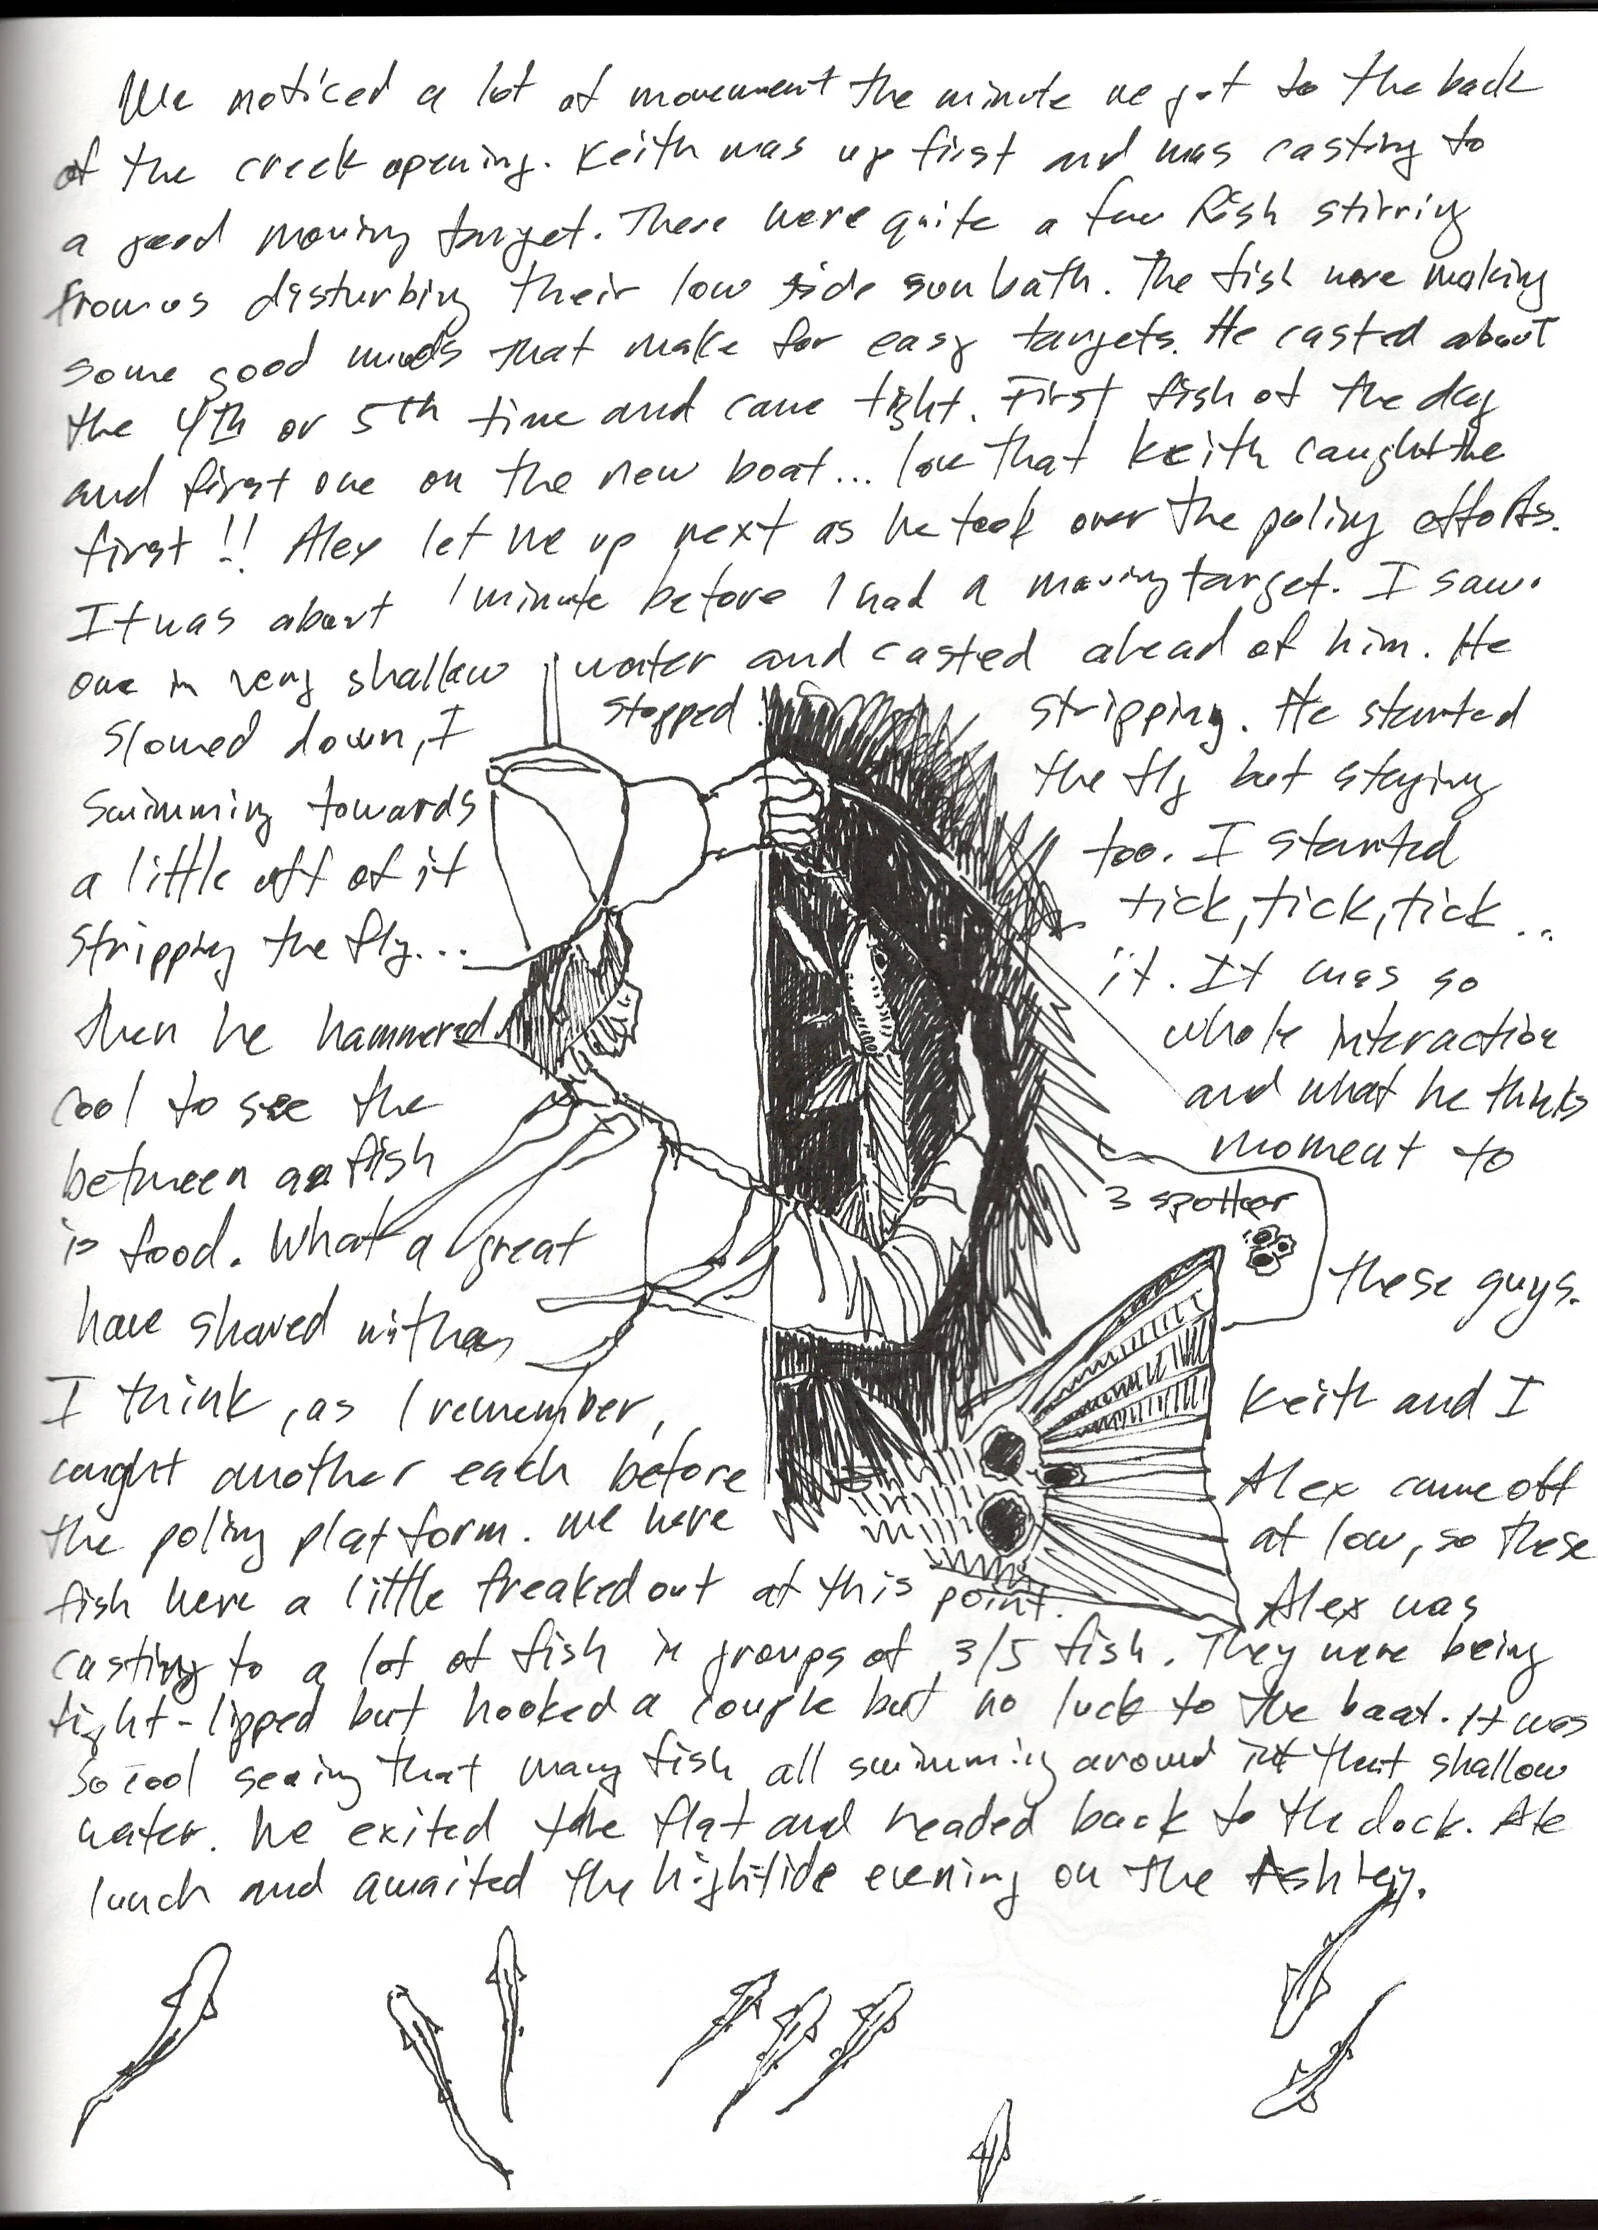 We noticed a lot of movement the minute we got to the back
of the creek opening. Keith was up first and was casting to
a good moving target. There were quite a few fish stirring
from us disturbing their low tide sun bath. The fish were making
some good muds that make for easy targets. He casted about
the 4th or 5th time and came tight. First fish of the day
and first one on the new boat... love that Keith caught the
first!! Alex let me up next as he took over the poling efforts.
It was about 1 minute before I had a moving target. I saw
one in very shallow water and casted ahead of him. He
slowed down, I stopped stripping. He started
swimming towards the fly but staying
a little off of it too. I started
stripping the fly... tick, tick, tick...
then he hammered it. It was so
cool to see the whole interaction
between a fish and what he thinks
is food. What a great moment to
3 spotter
have shared with these guys.
I think, as I remember, Keith and I
caught another each before Alex came off
the poling platform. We were at low, so these
fish were a little freaked out at this point. Alex was
casting to a lot of fish in groups of 3/5 fish. They were being
tight-lipped but hooked a couple but no luck to the boat. It was
so cool seeing that many fish all swimming around in that shallow
water. We exited the flat and headed back to the dock. Ate
lunch and awaited the hightide evening on the Ashley.